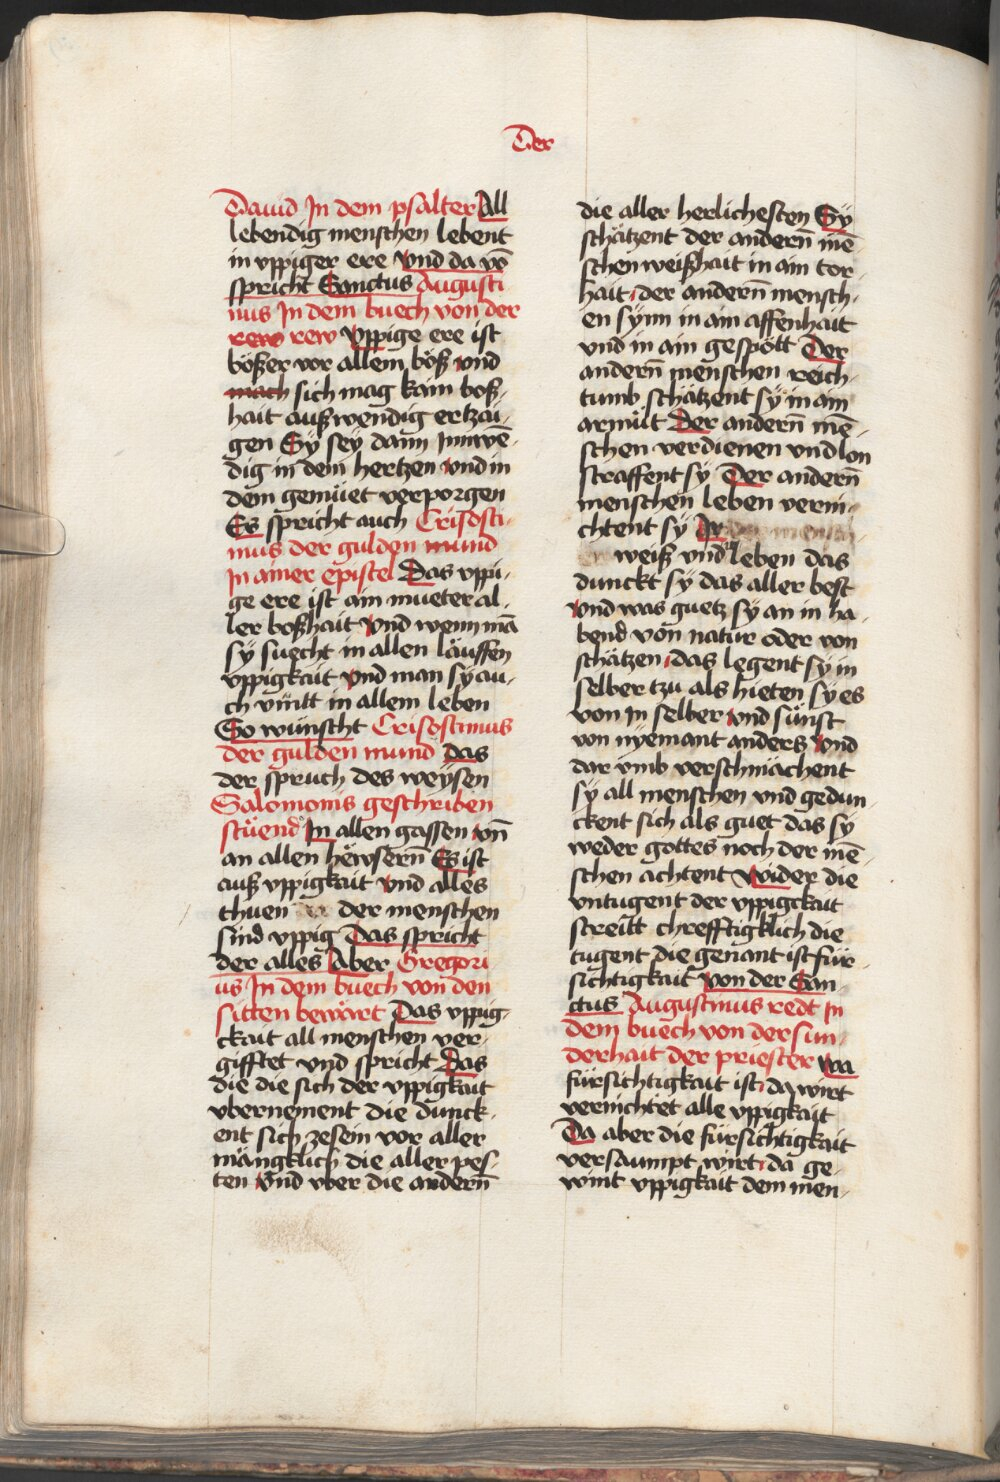 Der
Dauid In dem psalter All
lebendig menschen lebent
in vppiger ere Vnd da võ
spricht Sanctus Augusti
nus In dem buech von der
rew rew Vppige ere ist
bößer vor allem böß vnd
mach sich mag kain boß-
hait außwendig ertzai-
gen Sÿ seÿ dann Innwē-
dig in dem hertzen vnd in
dem gemüet verporgen
Es spricht auch Crisosti-
mus der gulden mund
In ainer epistel Das vppi-
ge ere ist ain mueter al-
ler boßhait Vnd wenn mā
sÿ suecht in allen läuffen
vppigkait Vnd man sÿ au-
ch vintt in allem leben
So wünscht Crisostimus
der gulden mund das
der spruch des weÿsen
Salomonis geschriben
stüend In allen gassen vn̄
an allen hëwsern̄ Es ist
auß vppigkait Vnd alles
thuen der menschen
sind vppig Das spricht
der alles Aber Gregori
us In dem buech von den
sitten bewärt Das vppig-
ckait all menschen ver-
gifftet vnd spricht Das
die die sich der vppigkait
vbernement die dunck-
ent sich zesein vor aller
mängklich die aller pes-
ten Vnd vber die andern̄
die aller herlichesten Sÿ
schätzent der andern̄ mē-
schen weißhait in ain tor-
hait der andern̄ mensch-
en synn in ain affenhait
vnd in ain gespött Der
andern̄ menschen reich-
tumb schätzent sÿ in ain
armüt Der andern̄ mē-
schen verdienen vnd lon
straffent sÿ Der andern̄
menschen leben verni-
chtent sÿ Ir
weiß vnd ir leben das
dunckt sÿ das aller best
Vnd was guetz sÿ an in ha-
bend von natur oder von
schätzen das legent sÿ in
selber tzu als hieten sÿ es
von In selber Vnd sünst
von nÿemant anders Vnd
dar vmb verschmächent
sÿ all menschen vnd gedun-
ckent sich als guet das sÿ
weder gottes noch der mē-
schen achtent Wider die
vntugent der vppigckait
streitt chrefftigklich die
tugent die genant ist für-
sichtigkait Von der San-
ctus Augustinus redt In
dem buech von der sun-
derhait der priester Wa
fürsichtigkait ist da wirt
vernichtet alle vppigkait
Da aber die fürsichtigkait
versaumpt wirt da ge-
wint vppigkait dem men-